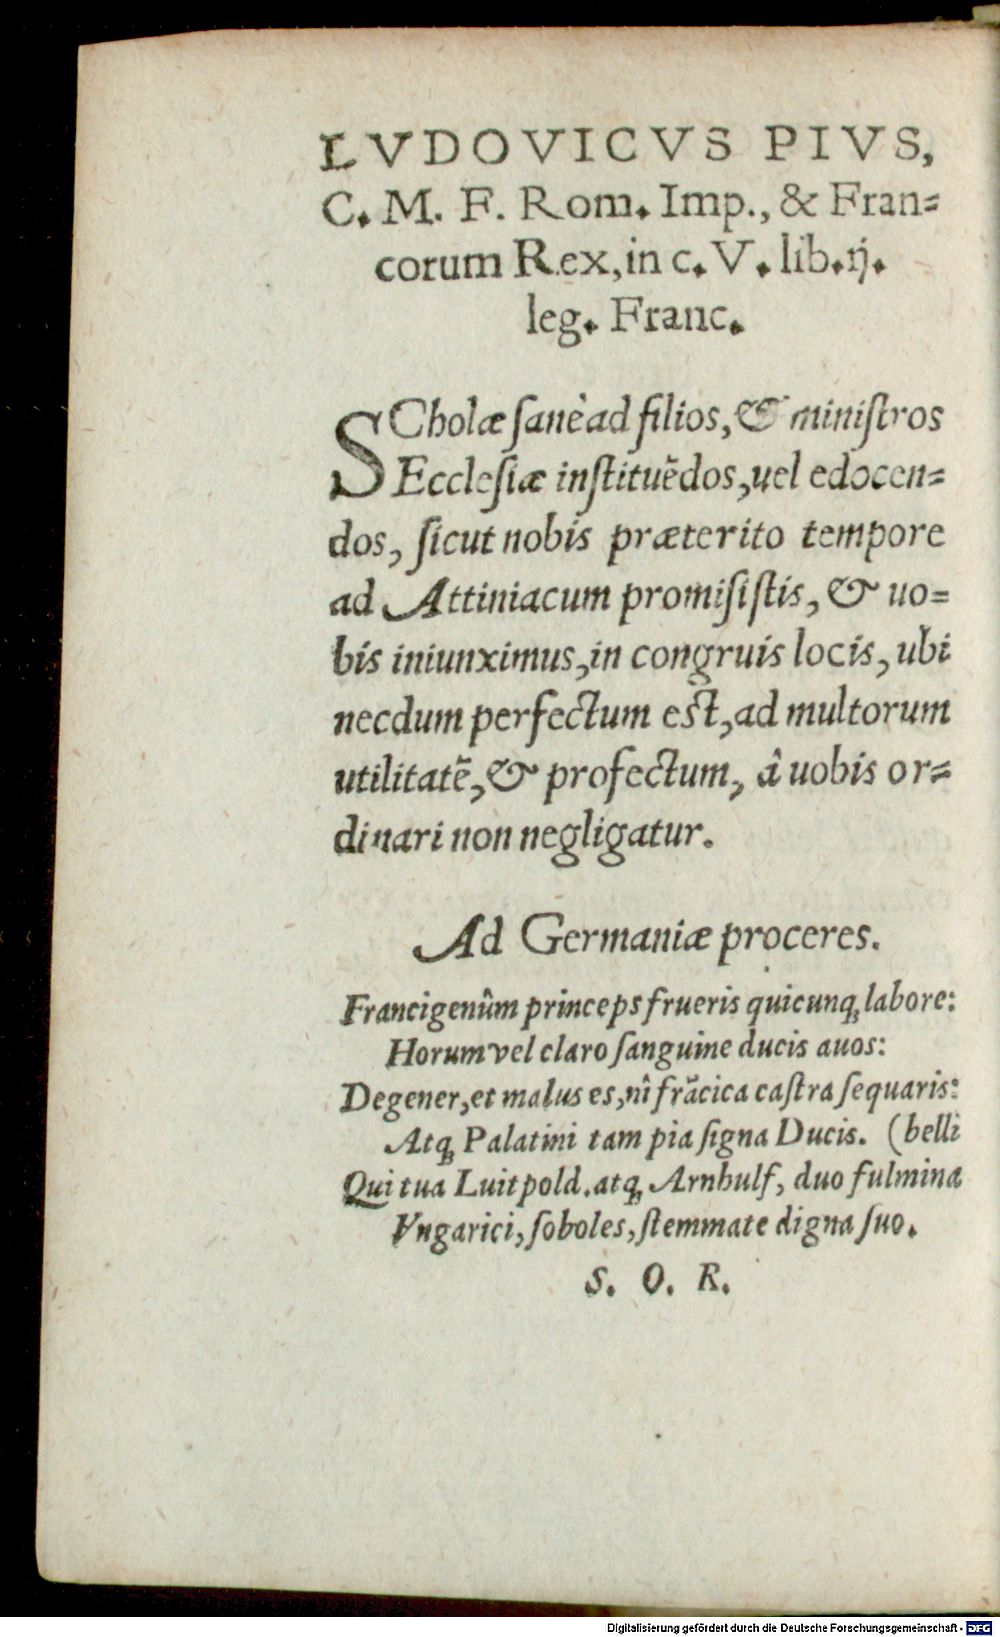 LVDOVICVS PIVS,
C. M. F. Rom. Imp., & Fran=
corum Rex, in c. V. lib. ij.
leg. Franc.
SCholæ ſanè ad filios, & miniſtros
Eccleſiæ inſtituēdos, uel edocen=
dos, ſicut nobis præterito tempore
ad Attiniacum promiſiſtis, & uo=
bis iniunximus, in congruis locis, ubi
necdum perfectum eſt, ad multorum
utilitatē, & profectum, â uobis or=
dinari non negligatur.
Ad Germaniæ proceres.
Francigenûm princeps frueris quicunq; labore:
Horum vel claro ſanguine ducis auos:
Degener, et malus es, nî frãcica caſtra ſequaris:
Atq; Palatini tam pia ſigna Ducis. (belli
Qui tua Luitpold. atq; Arnhulf, duo fulmina
Vngarici, ſoboles, ſtemmate digna ſuo.
S. O. R.
Digitalisierung gefördert durch die Deutsche Forschungsgemeinschaft - DFG